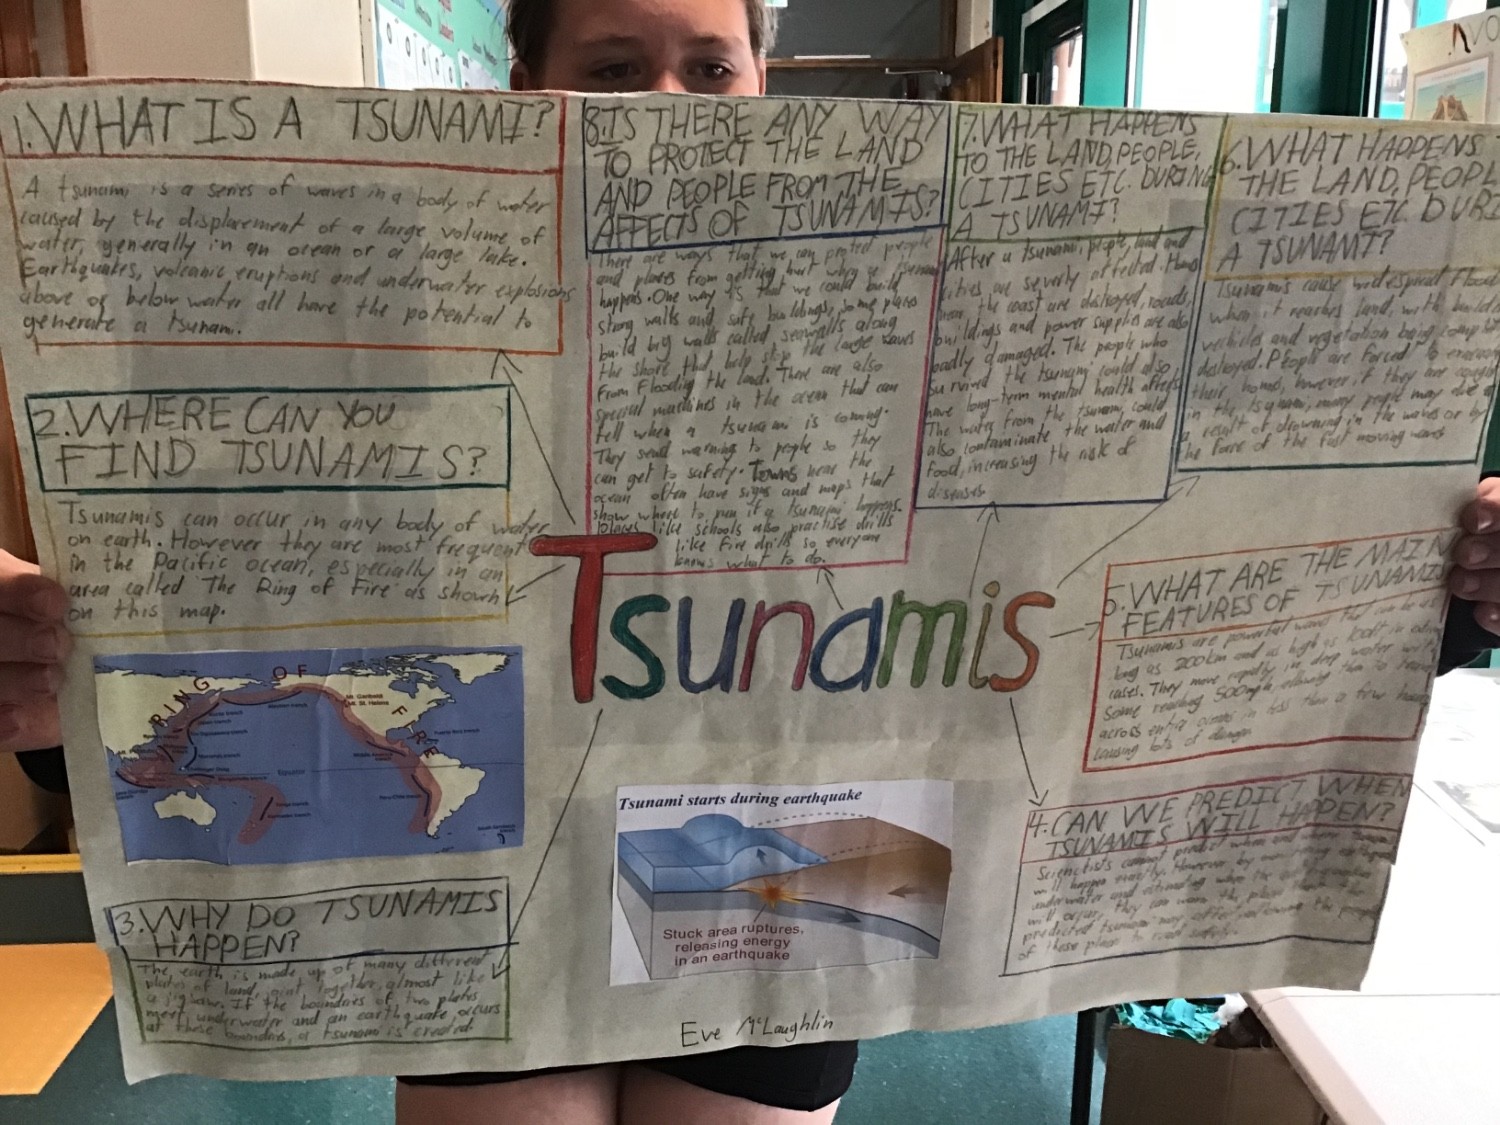 1. WHAT IS A TSUNAMI?
A tsunami is a series of waves in a body of water
caused by the displacement of a large volume of
water, generally in an ocean or a large lake.
Earthquakes, volcanic eruptions and underwater explosions
above or below water all have the potential to
generate a tsunami.
2. WHERE CAN YOU
FIND TSUNAMIS?
Tsunamis can occur in any body of water
on earth. However they are most frequent
in the Pacific ocean, especially in an
area called 'The Ring of Fire' as shown
on this map.
RING OF FIRE
Equator
3. WHY DO TSUNAMIS
HAPPEN?
The earth is made up of many different
plates of land, together, almost like
a jigsaw. If the boundries of two plates
meet underwater and an earthquake occurs
at these boundries, a tsunami is created.
8. IS THERE ANY WAY
TO PROTECT THE LAND
AND PEOPLE FROM THE
AFFECTS OF TSUNAMIS?
There are ways that we can protect people
and places from getting hurt when a tsunami
happens. One way is that we could build
strong walls and safe buildings, some places
build big walls called seawalls along
the shore that help stop the large waves
from flooding the land. There are also
special machines in the ocean that can
tell when a tsunami is coming.
They send warning to people so they
can get to safety. Towns near the
ocean often have signs and maps that
show where to run if a tsunami happens.
Places like schools also practise drills
like fire drills so everyone
knows what to do.
7. WHAT HAPPENS
TO THE LAND, PEOPLE,
CITIES ETC. DURING
A TSUNAMI?
After a tsunami, people, land and
cities are severly affected.
near the coast are destroyed, roads,
buildings and power supplies are also
badly damaged. The people who
survived the tsunami could also
have long-term mental health affects.
The water from the tsunami could
also contaminate the water and
food, increasing the risk of
diseases.
6. WHAT HAPPENS
THE LAND, PEOPL
CITIES ETC. DURI
A TSUNAMI?
Tsunamis cause widespread flood
when it reaches land, with build
vehicles and vegetation being
destroyed. People are forced to
their homes, however if they are caught
in the tsunami, many people may die
a result of drowning in the waves or by
the force of the fast moving waves
Tsunamis
5. WHAT ARE THE MAIN
FEATURES OF TSUNAMIS
Tsunamis are powerful waves that can be as
long as 200km and as high as 100ft in
cases. They move rapidly in deep water with
some reaching 500mph, allowing than to travel
across entire oceans in less than a few hours
causing lots of danger.
4. CAN WE PREDICT WHEN
TSUNAMIS WILL HAPPEN?
Scientists cannot predict when and where
will happen exactly. However by
underwater and estimating when the
will occur, they can warn the places
predicted tsunami may the people
of these places to
Tsunami starts during earthquake
Stuck area ruptures,
releasing energy
in an earthquake
Eve McLaughlin